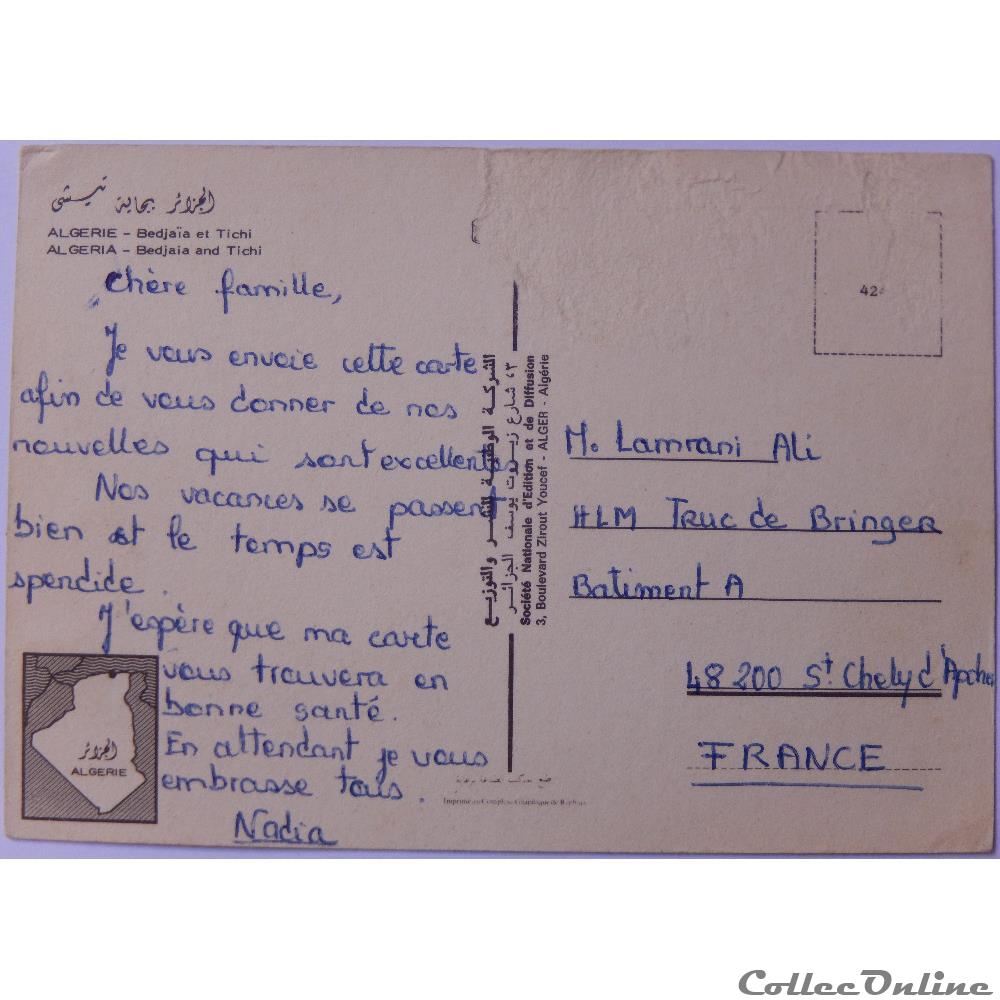 الجزائر بجاية تيشي
ALGERIE - Bedjaïa et Tichi
ALGERIA - Bedjaïa and Tichi
Chère famille,
Je vous envoie cette carte
afin de vous donner de nos
nouvelles qui sont excellentes
Nos vacances se passent
bien et le temps est
spendide.
J'espère que ma carte
vous trouvera en
bonne santé.
En attendant je vous
embrasse tous.
Nadia
الجزائر
ALGERIE
الشركة الوطنية للنشر والتوزيع
٣، شارع زيروت يوسف الجزائر
Société Nationale d'Edition et de Diffusion
3, Boulevard Zirout Youcef - ALGER - Algérie
Imprimé au Complexe Graphique de
42
M. Lamrani Ali
HLM Truc de Bringer
Batiment A
48200 St Chely d'Apcher
FRANCE
CollecOnline